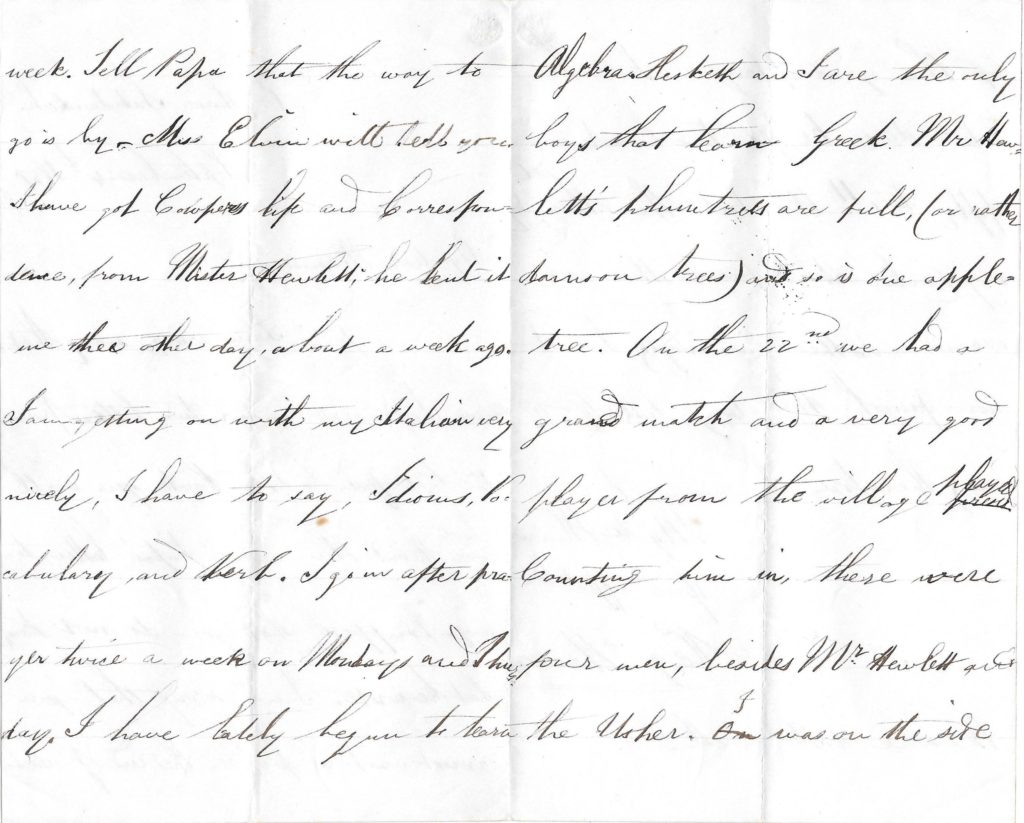 week. Tell Papa that the way to
go is by – Miss Elvin will tell you.
I have got Cowpers life and Correspon-
dence, from Mister Hewlett; he lent it
me thee other day, about a week ago.
I am getting on with my Italian very
nicely, I have to say, Idioms, Vo-
cabulary, and Verb. I go in after pra-
yer twice a week on Mondays and Thurs-
day. I have lately begun to learn
Algebra. Hesketh and I are the only
boys that learn Greek. Mr Hew-
lett's plumtrees are full, (or rather
damson trees) and so is one apple-
tree. On the 22nd we had a
grand match and a very good
player from the village played
Counting him in, there were
four men, besides Mr Hewlett and
the Usher. I was on the side